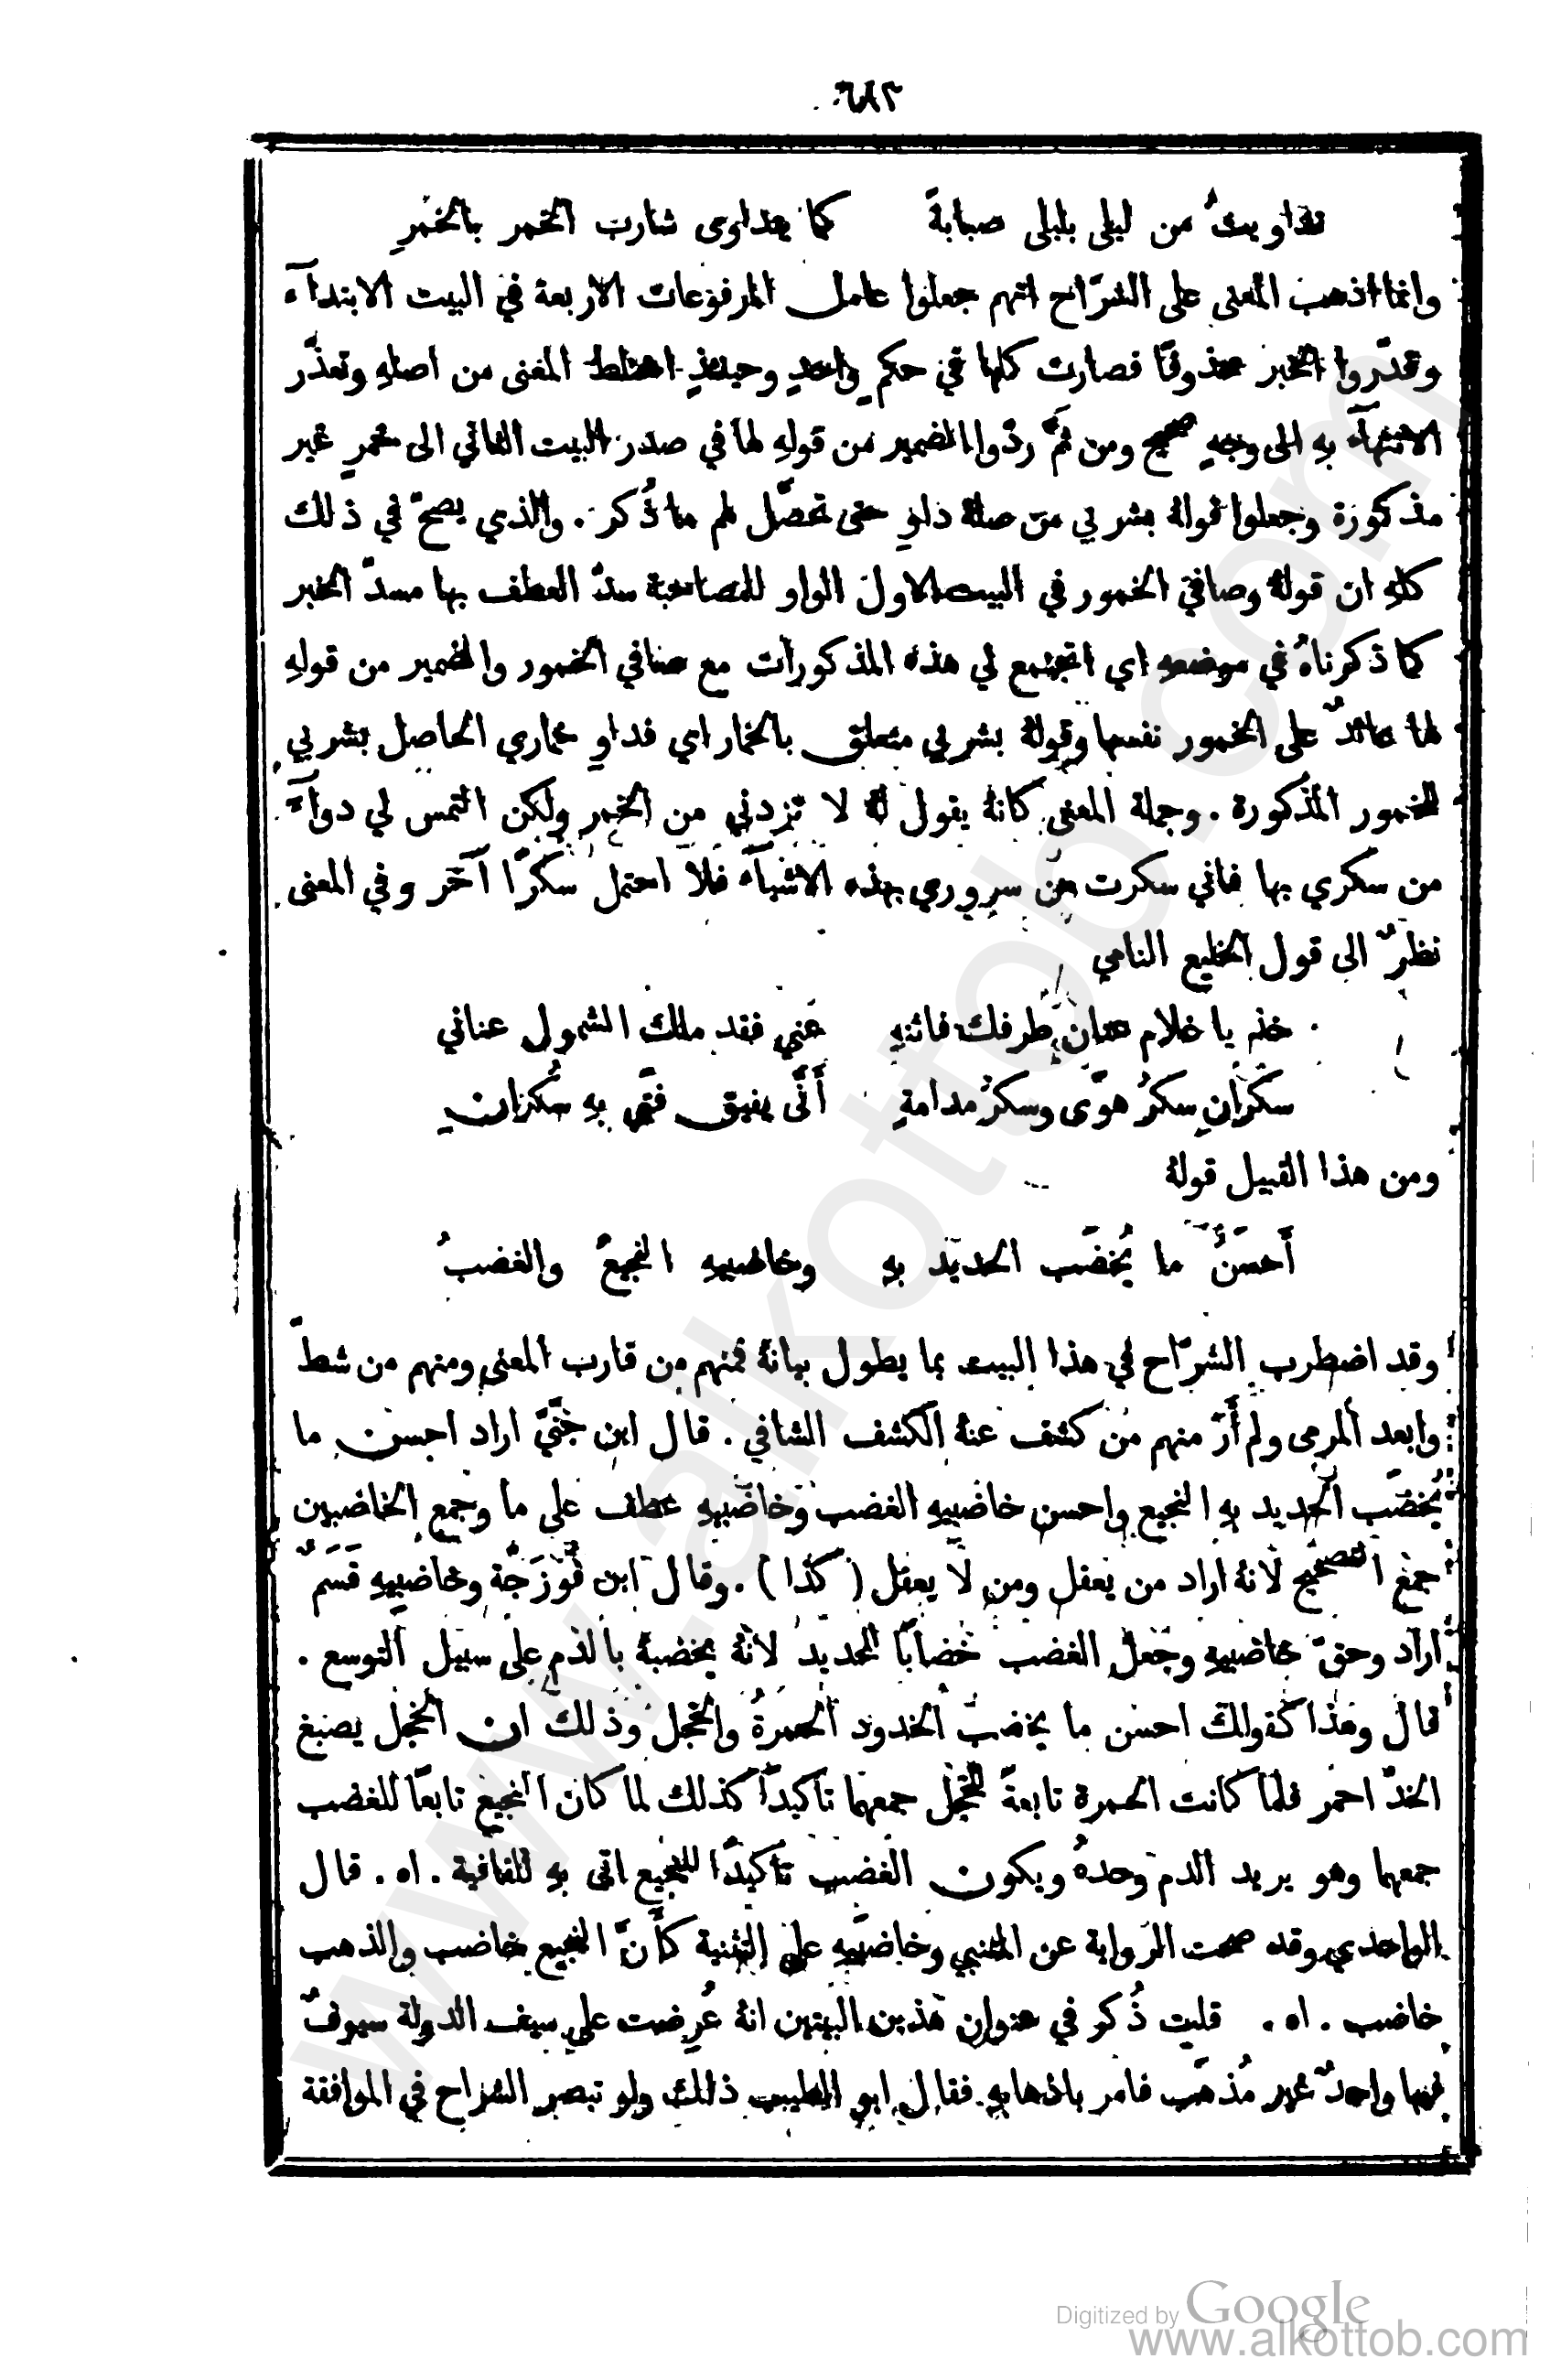 ٦٨٢
تداويتُ من ليلى بليلى صبابةً كما يتداوى شارب الخمر بالخمرِ
وانما اذهب المعنى على الشرّاح انهم جعلوا عامل المرفوعات الاربعة في البيت الابتدآء
وقدّروا الخبر محذوفًا فصارت كلها في حكمٍ واحدٍ وحينئذٍ اختلط المعنى من اصلهِ وتعذّر
الانتهآء بهِ الى وجهٍ صحيح ومن ثَمَّ ردّوا الضمير من قولهِ لها في صدر البيت الثاني الى خمرٍ غير
مذكورة وجعلوا قولهُ بشربي من صلة داوِ حتى تحصّل لهم ما ذُكر . والذي يصحّ في ذلك
كلهِ ان قولهُ وصافي الخمور في البيت الاول الواو للمصاحبة سدّ العطف بها مسدّ الخبر
كما ذكرناهُ في موضعهِ اي اتجتمع لي هذه المذكورات مع صافي الخمور والضمير من قولهِ
لها عائدٌ على الخمور نفسها وقولهُ بشربي متعلق بالخمار اي فداوِ خماري الحاصل بشربي
للخمور المذكورة . وجملة المعنى كانهُ يقول لهُ لا تزدني من الخمر ولكن التمس لي دوآءً
من سكري بها فاني سكرت من سروري بهذه الاشيآء فلا احتمل سكرًا آخر وفي المعنى
نظرٌ الى قول الخليع النامي
خذ يا غلام عنان طرفك فاثنهِ عني فقد ملك الشمول عناني
سكرانِ سكرُ هوًى وسكرُ مدامةٍ أَنَّى يفيق فتًى بهِ سُكرانِ
ومن هذا القبيل قولهُ
أَحسَنُ ما يُخضَب الحديد بهِ وخاضبيهِ النجيعُ والغضبُ
وقد اضطرب الشرّاح في هذا البيت بما يطول بيانهُ فمنهم من قارب المعنى ومنهم من شطّ
وابعد المرمى ولم أَرَ منهم من كشف عنهُ الكشف الشافي . قال ابن جنّيّ اراد احسن ما
يُخضَب الحديد بهِ النجيع واحسن خاضبيهِ الغضب وخاضبيهِ عطف على ما وجمع الخاضبين
جمع التصحيح لانهُ اراد من يعقل ومن لا يعقل ( كذا ) . وقال ابن فُوْرَجَّة وخاضبيهِ قَسَمٌ
اراد وحقّ خاضبيهِ وجعل الغضب خضابًا للحديد لانهُ يخضبهُ بالدم على سبيل التوسع .
قال وهذا كقولك احسن ما يخضب الخدود الحمرةُ والخجل وذلك ان الخجل يصبغ
الخدّ احمر فلما كانت الحمرة تابعةً للخجل جمعهما تاكيدًا كذلك لما كان النجيع تابعًا للغضب
جمعهما وهو يريد الدم وحدهُ ويكون الغضب تأكيدًا للنجيع اتى بهِ للقافية . اه . قال
الواحدي وقد صحت الرواية عن المتنبي وخاضبَيهِ على التثنية كأَنَّ النجيع خاضب والذهب
خاضب . اه . قلت ذُكر في عنوان هذين البيتين انهُ عُرِضت على سيف الدولة سيوفٌ
فيها واحدٌ غير مُذهَب فامر باذهابهِ فقال ابو الطيب ذلك ولو تبصر الشراح في الموافقة
Digitized by Google
www.alkottob.com